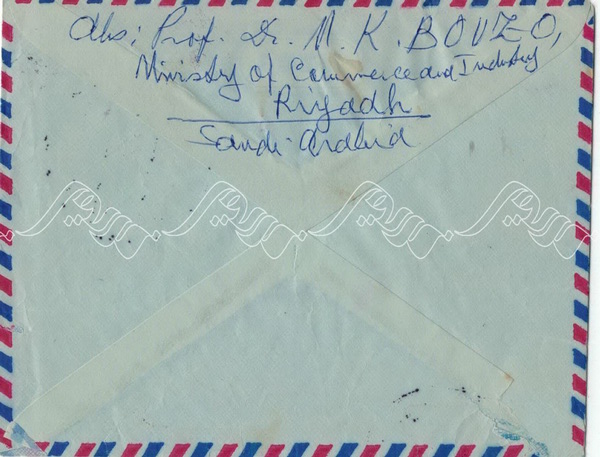 Abs: Prof. Dr. M. K. BOUZO,
Ministry of Commerce and Industry
Riyadh
Saudi-Arabia